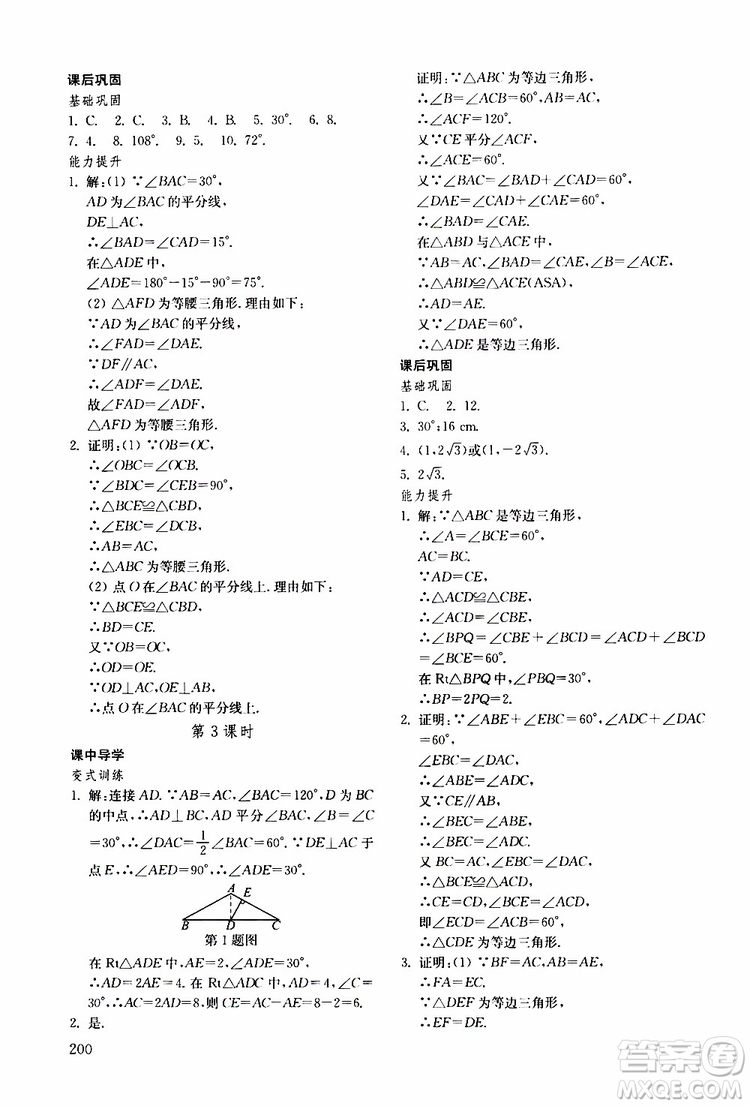 课后巩固
基础巩固
1. C. 2. C. 3. B. 4. B. 5. 30°. 6. 8.
7. 4. 8. 108°. 9. 5. 10. 72°.
能力提升
1. 解:(1) ∵∠BAC=30°,
AD 为∠BAC 的平分线,
DE⊥AC,
∴∠BAD=∠CAD=15°.
在△ADE 中,
∠ADE=180°-15°-90°=75°.
(2) △AFD 为等腰三角形. 理由如下:
∵AD 为∠BAC 的平分线,
∴∠FAD=∠DAE.
∵DF∥AC,
∴∠ADF=∠DAE.
故∠FAD=∠ADF,
△AFD 为等腰三角形.
2. 证明:(1) ∵OB=OC,
∴∠OBC=∠OCB.
∵∠BDC=∠CEB=90°,
∴△BCE≌△CBD,
∴∠EBC=∠DCB,
∴AB=AC,
∴△ABC 为等腰三角形.
(2) 点 O 在∠BAC 的平分线上. 理由如下:
∵△BCE≌△CBD,
∴BD=CE.
又∵OB=OC,
∴OD=OE.
∵OD⊥AC, OE⊥AB,
∴点 O 在∠BAC 的平分线上.
第 3 课时
课中导学
变式训练
1. 解:连接 AD. ∵AB=AC,∠BAC=120°,D 为 BC
的中点,∴AD⊥BC, AD 平分∠BAC,∠B=∠C
=30°,∴∠DAC=1/2∠BAC=60°. ∵DE⊥AC 于
点 E,∴∠AED=90°,∴∠ADE=30°.
A E
B D C
第 1 题图
在 Rt△ADE 中,AE=2,∠ADE=30°,
∴AD=4. 在 Rt△ADC 中,∠C=30°,
∴AC=2AD=8,则 CE=AC-AE=8-2=6.
2. 是.
200
证明:∵△ABC 为等边三角形,
∴∠B=∠ACB=60°,AB=AC.
∴∠ACF=120°.
又∵CE 平分∠ACF,
∴∠ACE=60°.
又∵∠BAC=∠BAD+∠CAD=60°,
∠DAE=∠CAD+∠CAE=60°,
∴∠BAD=∠CAE.
在△ABD 与△ACE 中,
∵AB=AC,∠BAD=∠CAE,∠B=∠ACE,
∴△ABD≌△ACE(ASA).
∴AD=AE.
又∵∠DAE=60°,
∴△ADE 是等边三角形.
课后巩固
基础巩固
1. C. 2. 12.
3. 30°;16 cm.
4. (1,2√3)或(1,-2√3).
5. 2√3.
能力提升
1. 解:∵△ABC 是等边三角形,
∴∠A=∠BCE=60°,
AC=BC.
∵AD=CE,
∴△ACD≌△CBE,
∴∠ACD=∠CBE,
∴∠BPQ=∠CBE+∠BCD=∠ACD+∠BCD
=60°.
在 Rt△BPQ 中,∠PBQ=30°,
∴BP=2PQ=2.
2. 证明:∵∠ABE+∠CBE=60°,∠CBE+∠DAC=
60°,
∠EBC=∠DAC,
∴∠ABE=∠DAC.
又∵CE∥AB,
∴∠BEC=∠ABE,
∴∠BEC=∠ADC.
又 BC=AC,∠EBC=∠DAC,
∴△BCE≌△ACD,
∴CE=CD,∠BCE=∠ACD,
即∠ECD=∠ACB=60°,
∴△CDE 为等边三角形.
3. 证明:(1) ∵BF=AC,AB=AE,
∴FA=EC.
∵△DEF 为等边三角形,
∴EF=DE.
答案卷
MXQE.COM